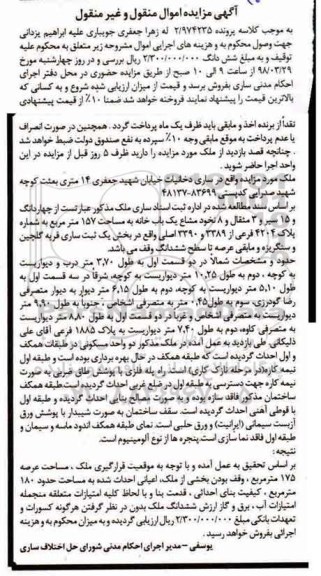 آگهی مزایده اموال منقول و غیر منقول
به موجب کلاسه پرونده ۲/۹۷۴۲۳۵ له زهرا جعفری جویباری علیه ابراهیم یزدانی
جهت وصول محکوم به و هزینه های اجرایی اموال مشروحه زیر متعلق به محکوم علیه
توقیف و به مبلغ شش دانگ ۲/۳۰۰/۰۰۰/۰۰۰ ریال بررسی و در روز چهارشنبه مورخ
۹۸/۰۳/۲۹ از ساعت ۹ الی ۱۰ صبح از طریق مزایده حضوری در محل دفتر اجرای
احکام مدنی ساری بفروش برسد و قیمت از میزان ارزیابی شده شروع و به کسانی که
بالاترین قیمت را پیشنهاد نمایند فروخته خواهد شد ضمنا ۱۰٪ از قیمت پیشنهادی
نقداً از برنده اخذ و مابقی باید ظرف یک ماه پرداخت گردد . همچنین در صورت انصراف
یا عدم پرداخت به موقع مابقی وجه ۱۰٪ سپرده به نفع صندوق دولت ضبط خواهد شد
. چنانچه قصد بازدید از ملک مورد مزایده را دارید ظرف ۵ روز قبل از مزایده در این
واحد اجرا حاضر شوید .
ملک مورد مزایده واقع در ساری دخانیات خیابان شهید جعفری ۱۴ متری بعثت کوچه
شهید صدریی کدپستی ۸۳۶۹۹-۴۸۱۳۷
بر اساس سند مطالعه شده در اداره ثبت اسناد ساری ملک مذکور عبارتست از چهاردانگ
و ۱۵ سیر و ۳ مثقال و ۸ نخود مشاع یک باب خانه به مساحت ۱۵۷ متر مربع به شماره
پلاک ۴۲۰۴ فرعی از ۳۳۸۹ و ۳۳۹۰ اصلی واقع در بخش یک ثبت ساری قریه گلچین
و سنگریزه و مابقی عرصه تا سطح ششدانگ وقف می باشد.
حدود و مشخصات شمالاً در دو قسمت اول به طول ۳،۷۰ متر درب و دیواریست
به کوچه ، دوم به طول ۱۰،۲۵ متر دیواریست به کوچه، شرقاً در سه قسمت اول به
طول ۵،۱۰ متر دیواریست به کوچه، دوم به طول ۶،۱۵ متر دیوار به دیوار متصرفی
رضا گودرزی، سوم به طول ۰،۴۵ متر به متصرفی اشخاص ، جنوباً به طول ۹،۹۰ متر
دیواریست به متصرفی اشخاص و غرباً در دو قسمت اول به طول ۸،۸۰ متر دیواریست
به متصرفی کاوه، دوم به طول ۷،۴۰ متر دیواریست به پلاک ۱۸۸۵ فرعی آقای علی
ذلیکانی. طی بازدید به عمل آمده در ملک مذکور دو واحد مسکونی در طبقات همکف
و اول احداث گردیده است که طبقه همکف در حال بهره برداری بوده است و طبقه اول
نیمه کاره (در مرحله نازک کاری) است، راه پله فلزی با پوشش طاق ضربی به صورت
نیمه کاره جهت دسترسی به طبقه اول در ضلع غربی احداث گردیده است. طبقه همکف
ساختمان مذکور فاقد سازه بوده و به صورت مصالح بنایی احداث گردیده و طبقه اول
با قوطی آهنی احداث گردیده است. سقف ساختمان به صورت شیبدار با پوشش ورق
آزبست سیمانی (ایرانیت) و ورق حلبی است. نمای طبقه همکف اندود ماسه و سیمان و
طبقه اول فاقد نما سازی است پنجره ها از نوع آلومینیوم است.
نتیجه :
بر اساس تحقیق به عمل آمده و با توجه به موقعیت قرارگیری ملک ، مساحت عرصه
۱۷۵ مترمربع ، وقف بودن بخشی از ملک، اعیانی احداث شده به مساحت حدود ۱۸۰
مترمربع ، کیفیت بنای احداثی ، قدمت بنا و با لحاظ کلیه امتیازات متعلقه منجمله
امتیازات آب ، برق و گاز ارزش ششدانگ ملک بدون در نظر گرفتن هرگونه کسورات و
تعهدات بانکی مبلغ ۲/۳۰۰/۰۰۰/۰۰۰ ریال ارزیابی گردیده و به میزان محکوم به و هزینه
اجرائی بفروش خواهد رسید .
یوسفی – مدیر اجرای احکام مدنی شورای حل اختلاف ساری